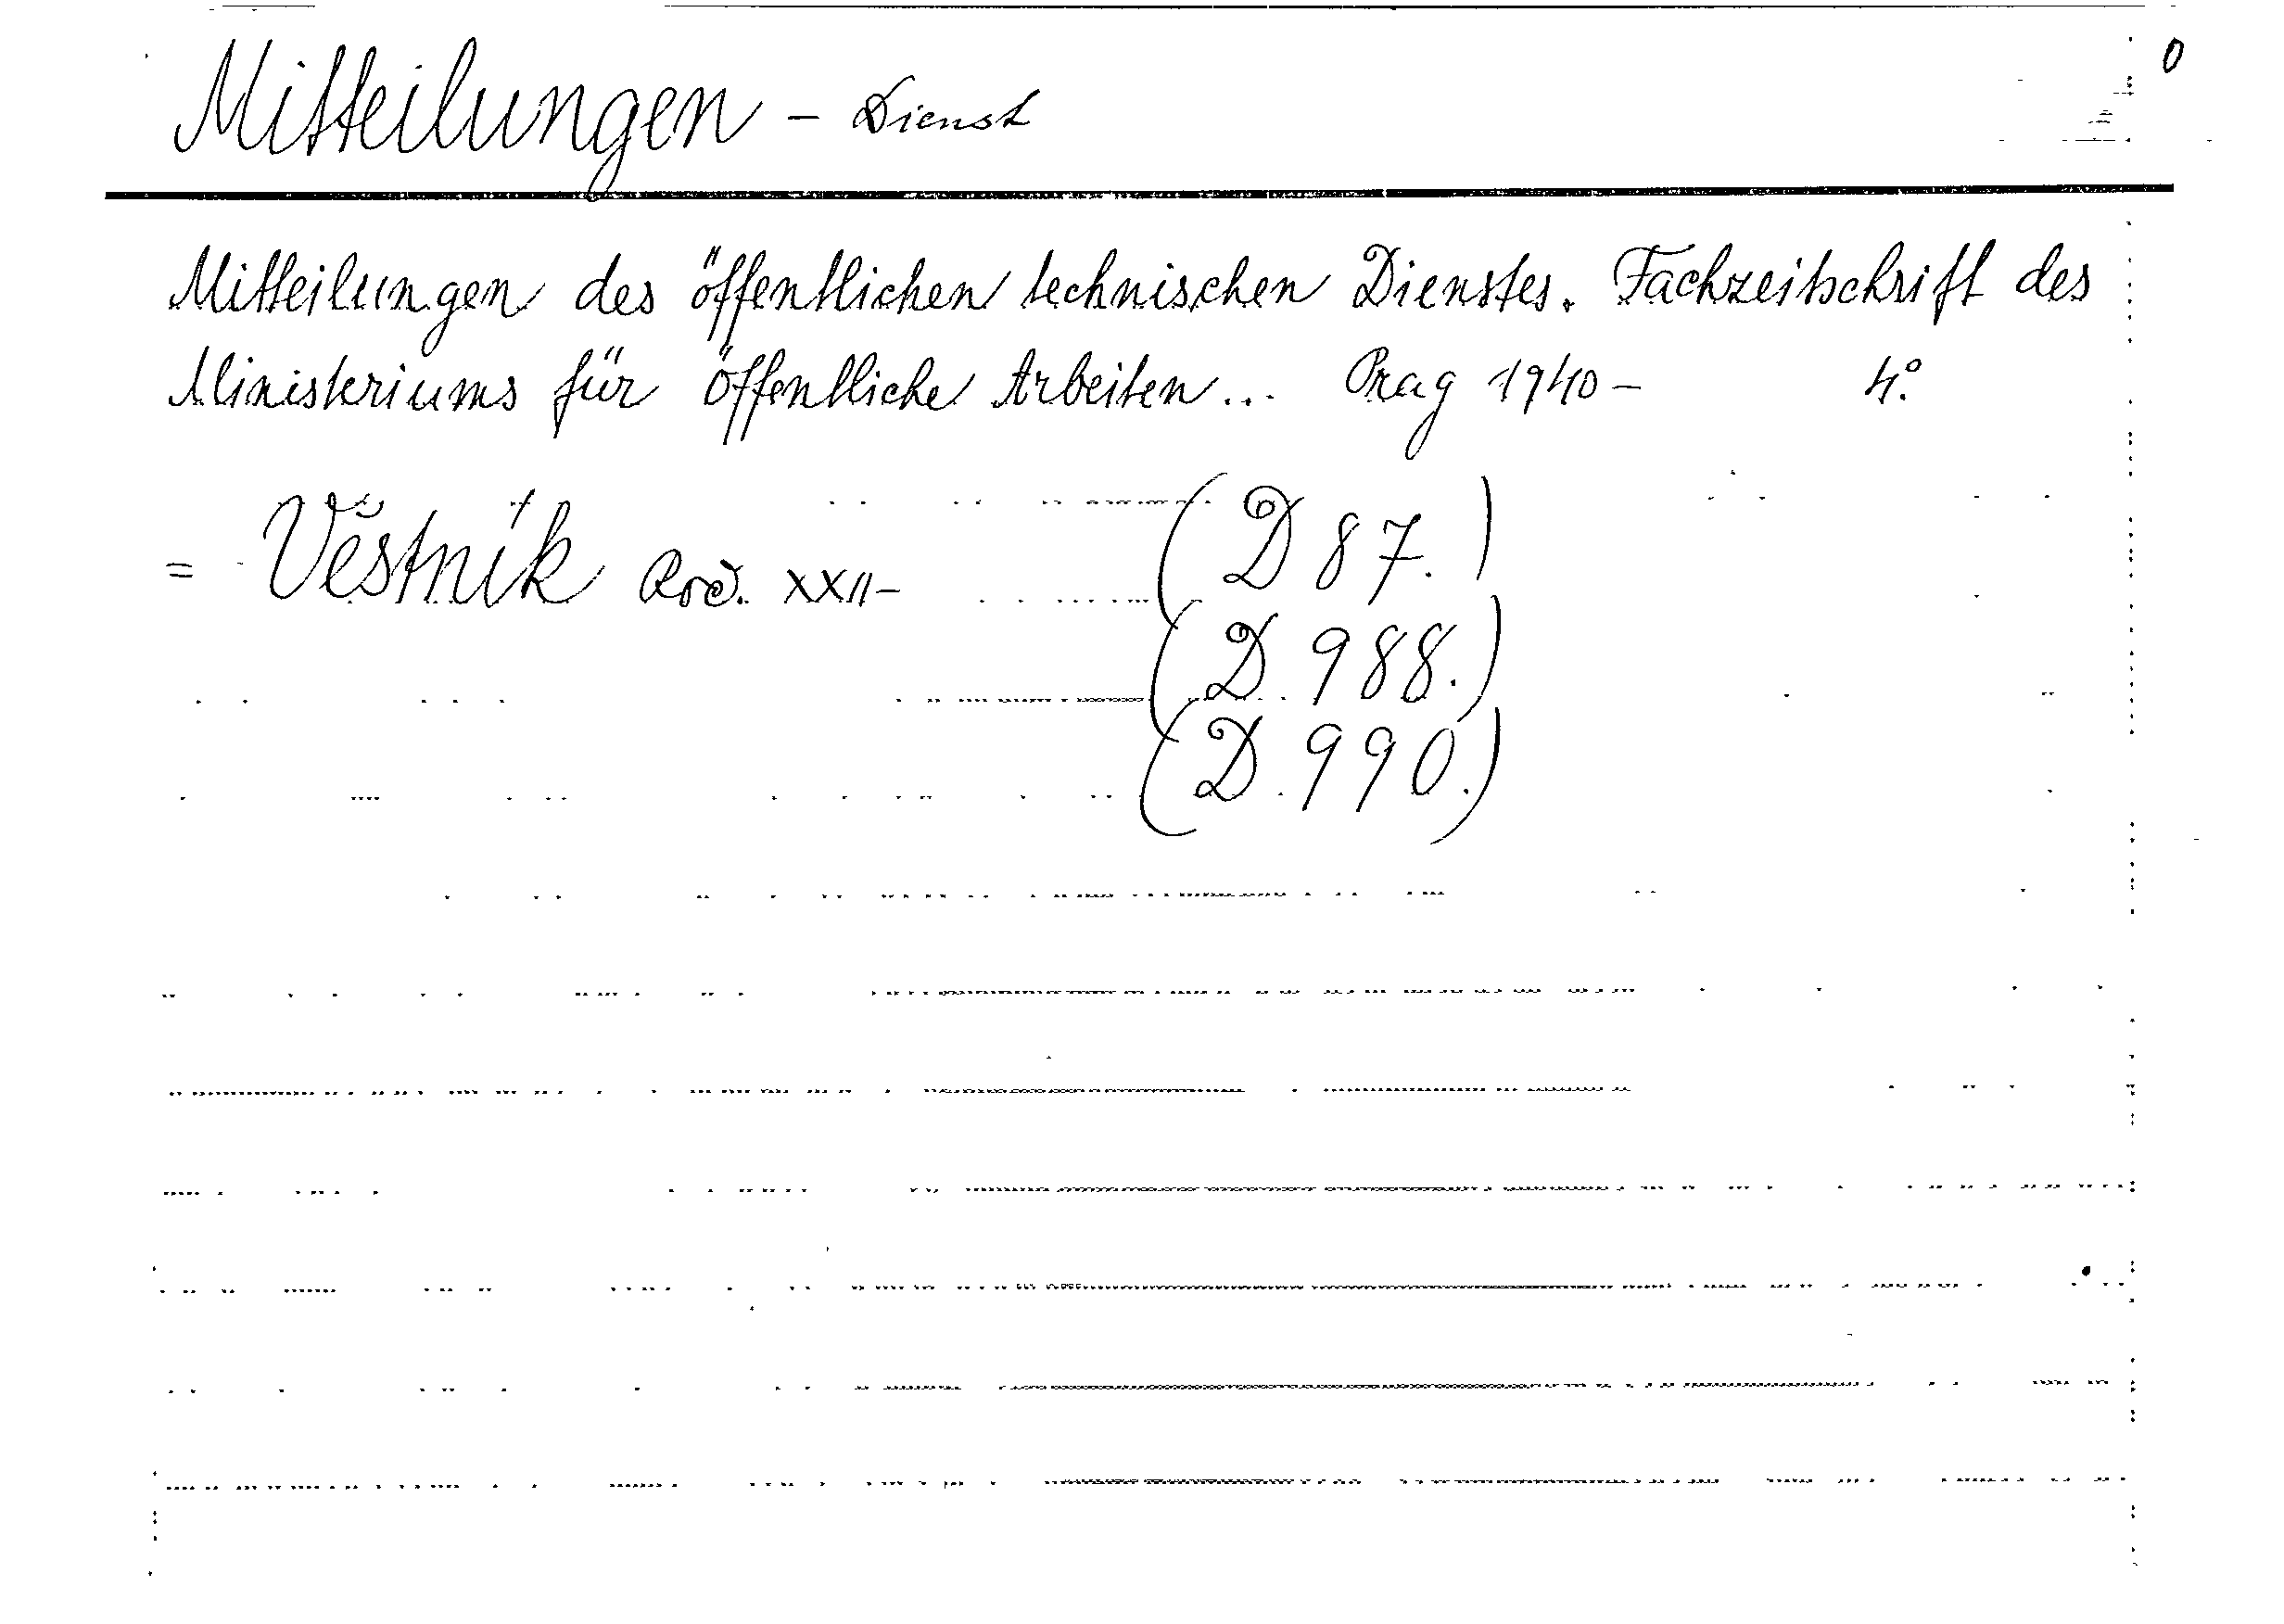 Mitteilungen – Dienst
0
Mitteilungen des öffentlichen technischen Dienstes. Fachzeitschrift des
Ministeriums für öffentliche Arbeiten... Prag 1940 – 4°.
= Věstník Roč. XXII – (D 87.)
(D. 988.)
(D. 990.)